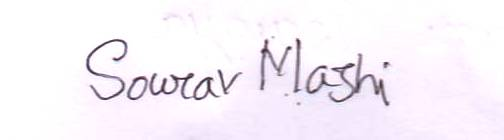 Sourav Mashi